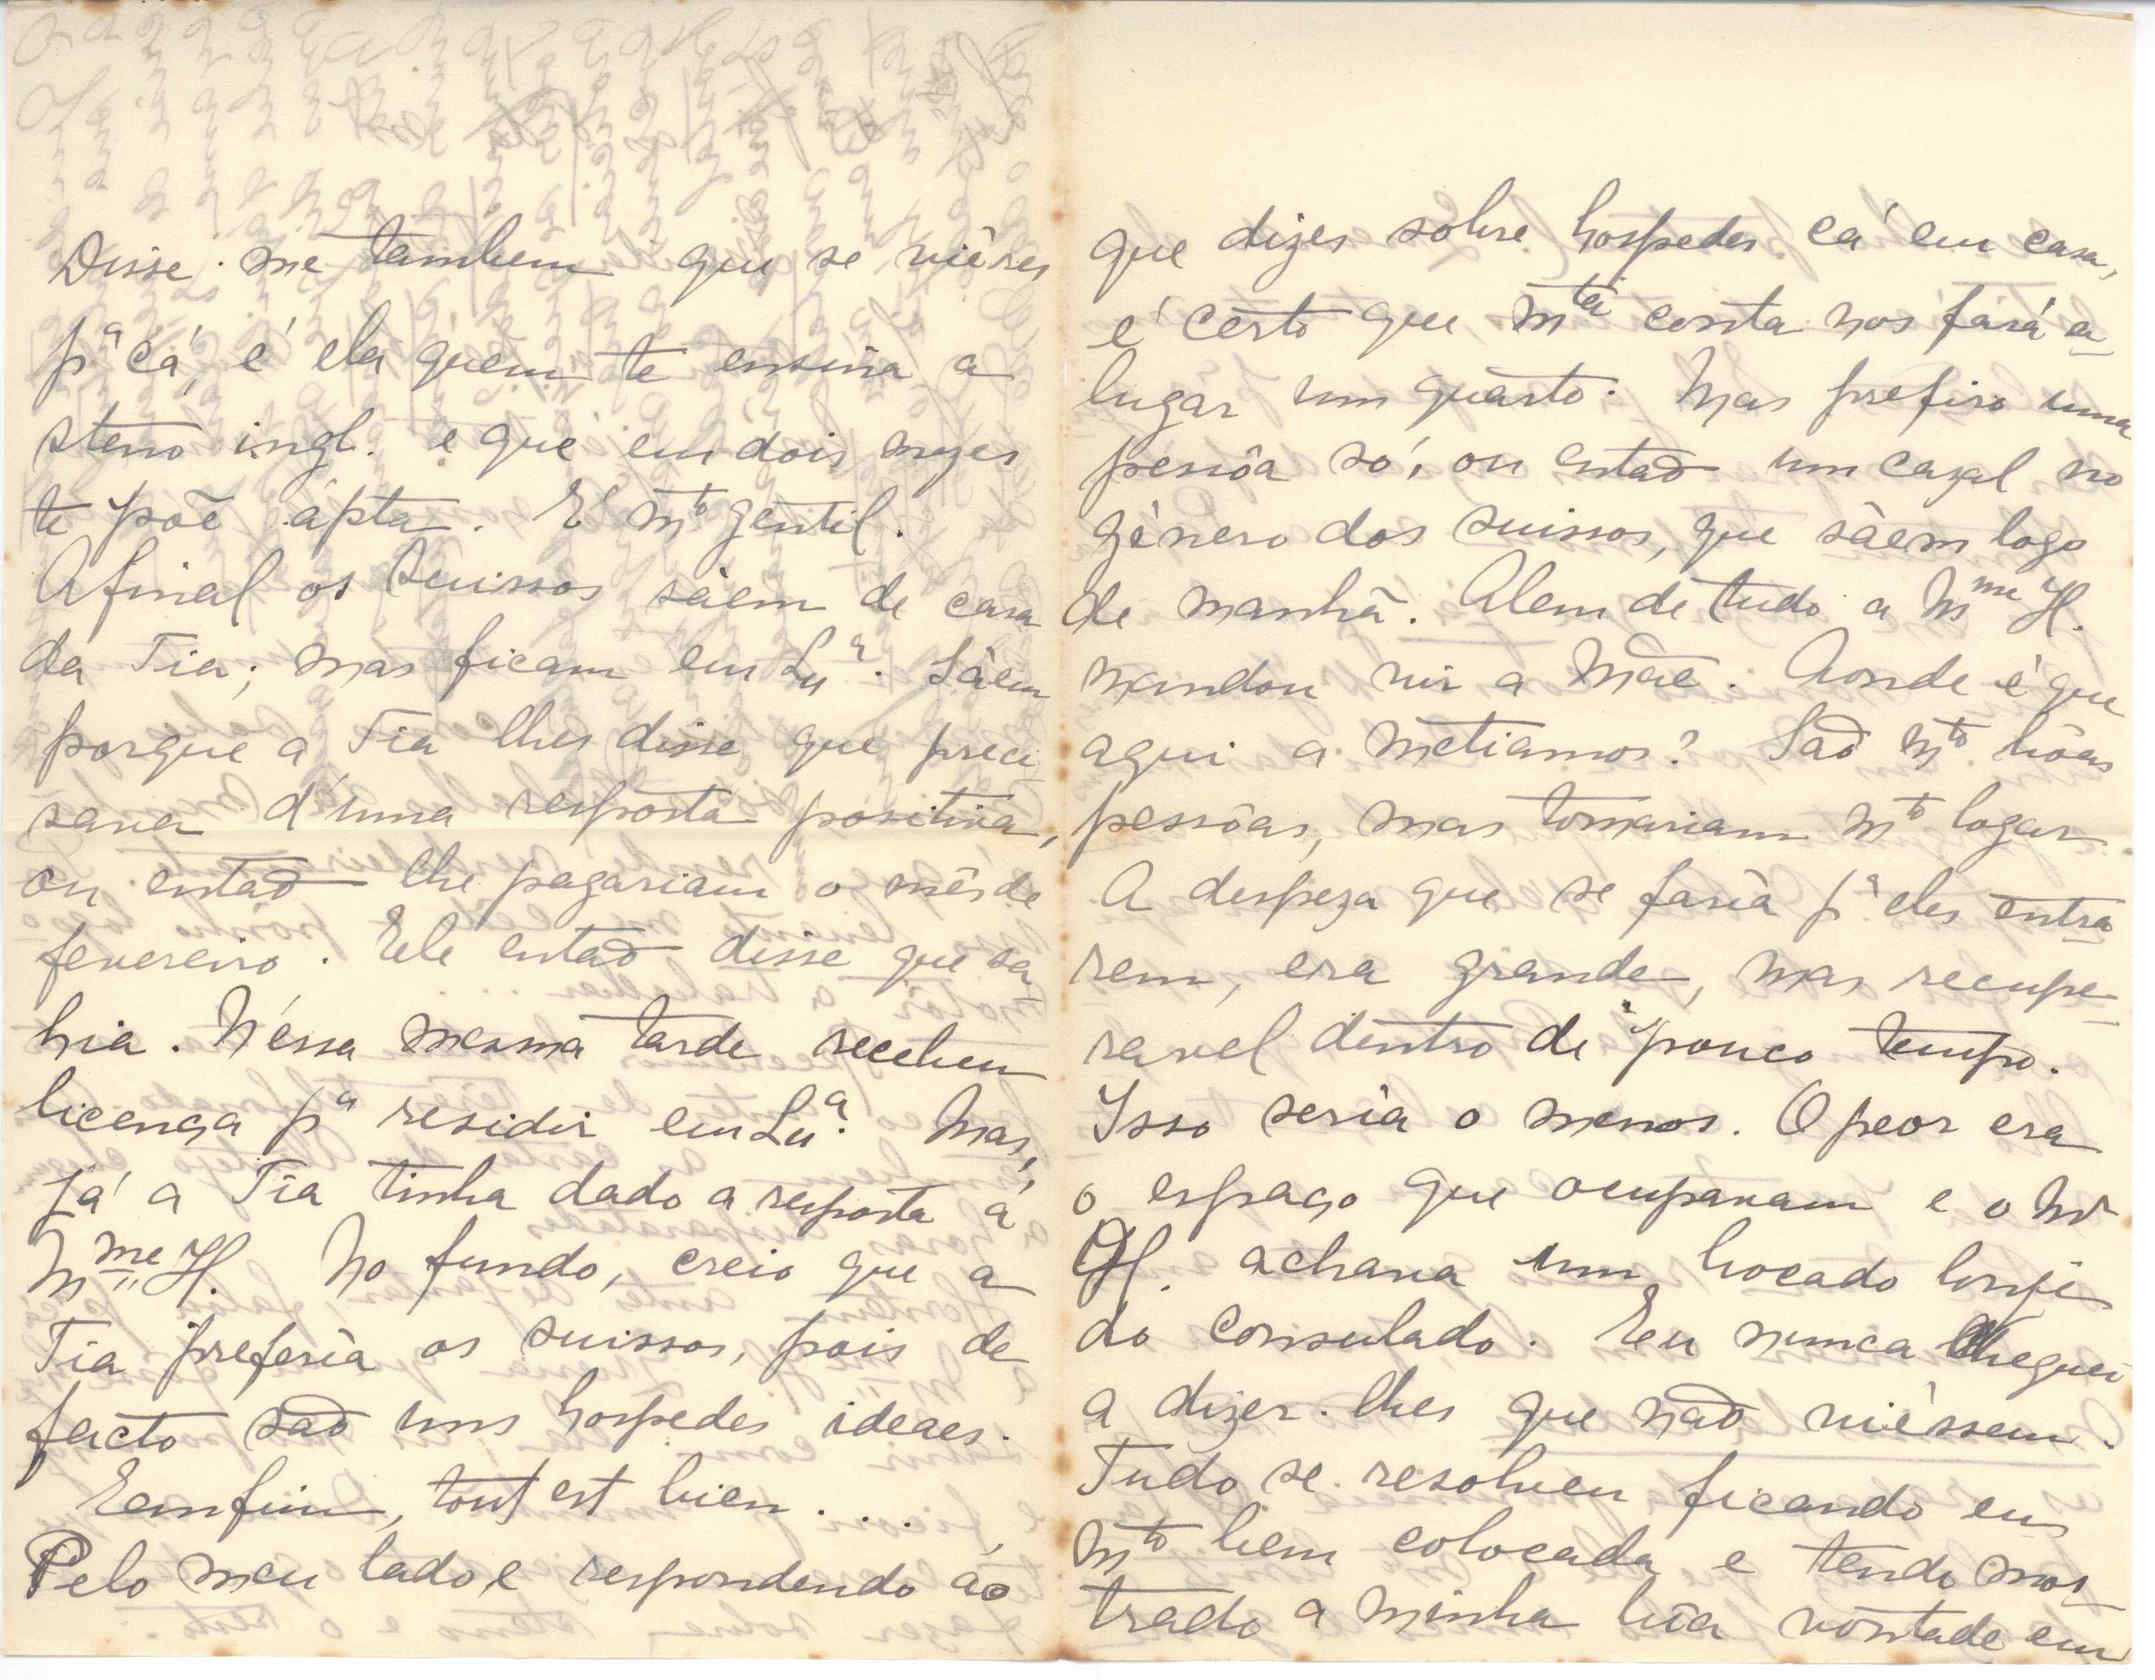 Disse-me tambem que se viéres
pª cá, é ela quem te ensina a
steno ingl. e que em dois mezes
te pôe ápta. É mto gentil.
Afinal os Suissos sàem de casa
da Tia; mas ficam em Lxª. Sàem
porque a Tia lhes disse que preci
sava d'uma resposta positiva,
ou entaõ lhe pagariam o mês de
fevereiro. Ele entaõ disse que sa-
hia. N'essa mesma tarde recebeu
licença pª residir em Lxª. Mas,
já a Tia tinha dado a resposta á
Mme H. No fundo, creio que a
Tia preferia os suissos, pois de
facto saõ uns hospedes ideaes.
Eemfim, tout est bien....
Pelo meu lado, e respondendo ao
que dizes sobre hospedes cá em casa,
é certo que mta conta nos fará a-
lugar um quarto. Mas prefiro uma
pessôa só, ou entaõ um cazal no
género dos suissos, que sàem logo
de manhã. Alem de tudo a Mme H.
mandou vir a Mãe. Aonde é que
aqui a metiamos? Saõ mto bôas
pessôas, mas tomariam mto logar.
A despeza que se faria pª eles entra
rem, era grande, mas recupe-
ravel dentro de pouco tempo.
Isso seria o menos. O peor era
o espaço que ocupavam e o Mr
H. achava um bocado longe
do consulado. Eu nunca cheguei
a dizer-lhes que naõ viéssem.
Tudo se resolveu ficando eu
mto bem colocada e tendo mos-
trado a minha bôa vontade em